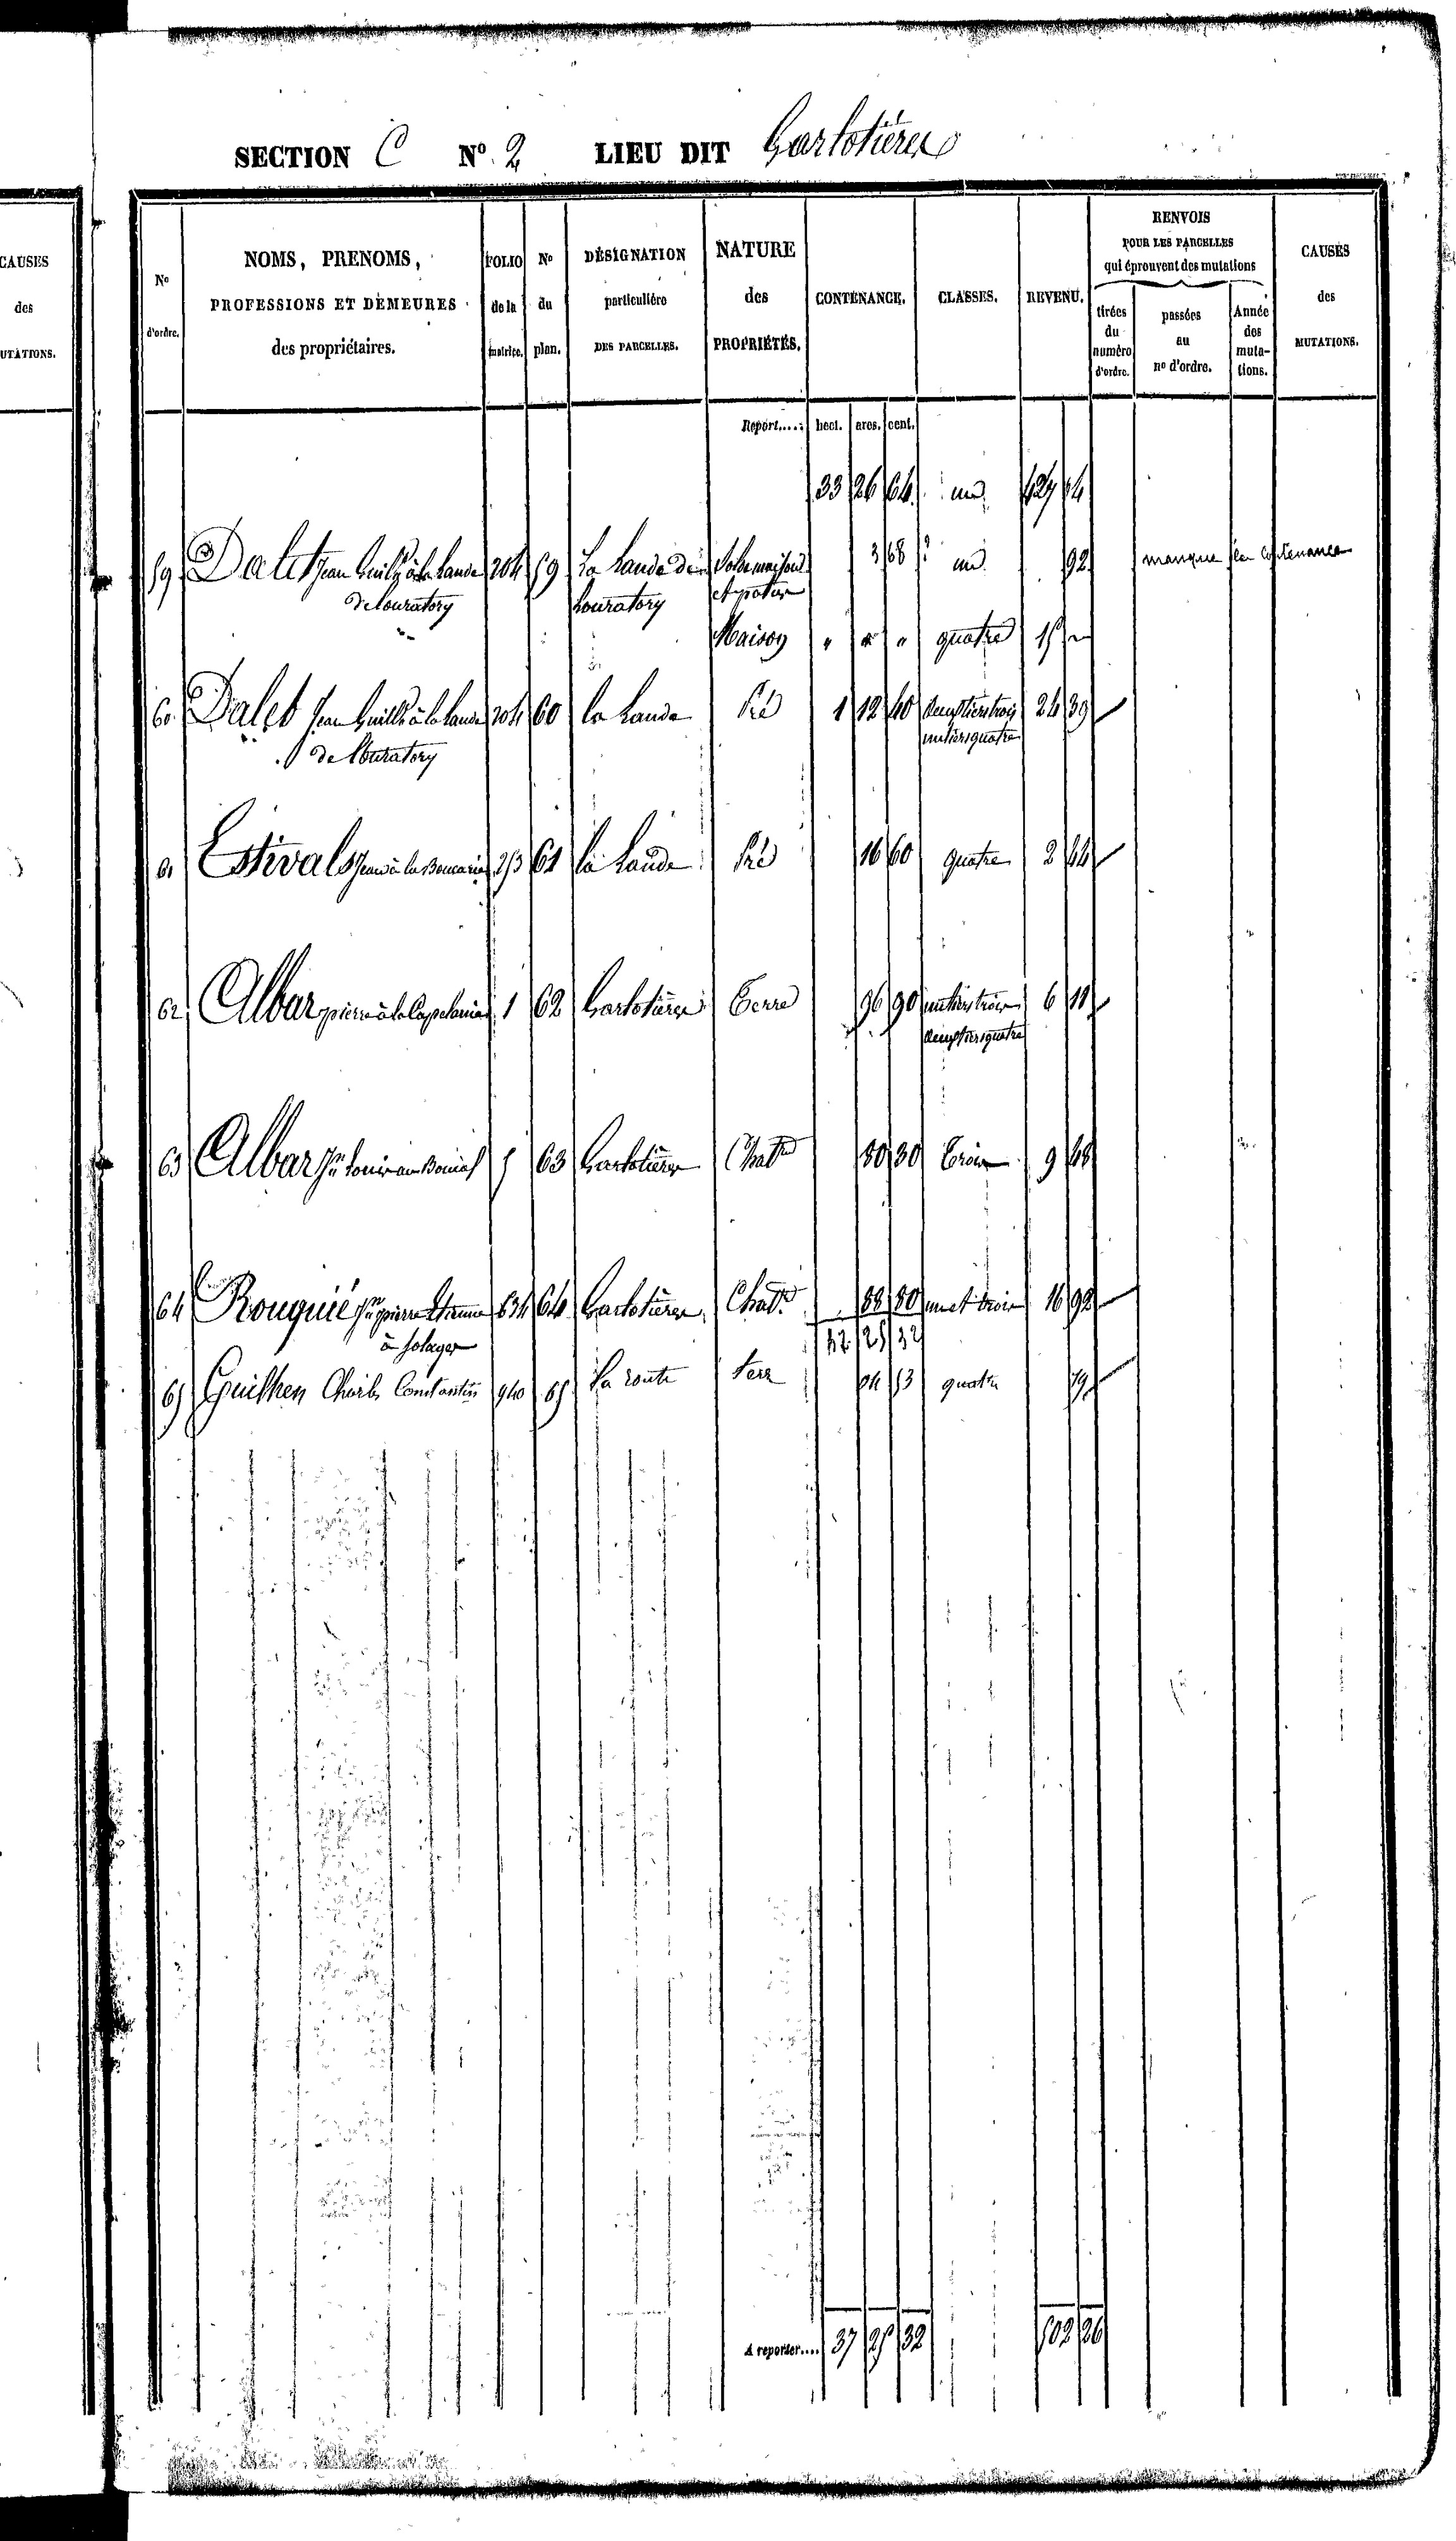 SECTION C N° 2 LIEU DIT Garlotières
CAUSES
des
MUTATIONS.
N° d'ordre.
NOMS, PRENOMS,
PROFESSIONS ET DEMEURES
des propriétaires.
FOLIO de la matrice.
N° du plan.
DÉSIGNATION
particulière
DES PARCELLES.
NATURE
des
PROPRIÉTÉS.
CONTENANCE.
CLASSES.
REVENU.
RENVOIS
POUR LES PARCELLES
qui éprouvent des mutations
tirées du numéro d'ordre.
passées au no d'ordre.
Année des mutations.
CAUSES
des
MUTATIONS.
Report....: hect. ares. cent.
33 26 64 un 427
59 Dalet Jean à la Lande 204 59 La Lande de 3 68 ? un 92 manque la contenance
de Louratory Louratory
Maison " " " quatre 15 "
60 Dalet Jean à la Lande 204 60 la Lande Pré 1 12 40 deux tiers trois 24 39
de Louratory un tiers quatre
61 Estivals Jean à la 61 la Lande Pré 16 60 quatre 2 44
62 Albar pierre à la Capelanie 1 62 Garlotières Terre 96 90 un tiers trois 6 11
deux tiers quatre
63 Albar Jn Louis au 5 63 Garlotières Chatre 80 30 Trois 9 48
64 Rouquié Jn pierre Etienne 634 64 Garlotières Chatre 88 80 un et trois 16 92
à Solages 37 25 32
65 Guilhen Charles Constantin 940 65 La route terre 04 53 quatre 79
A reporter.... 37 25 32 502 26